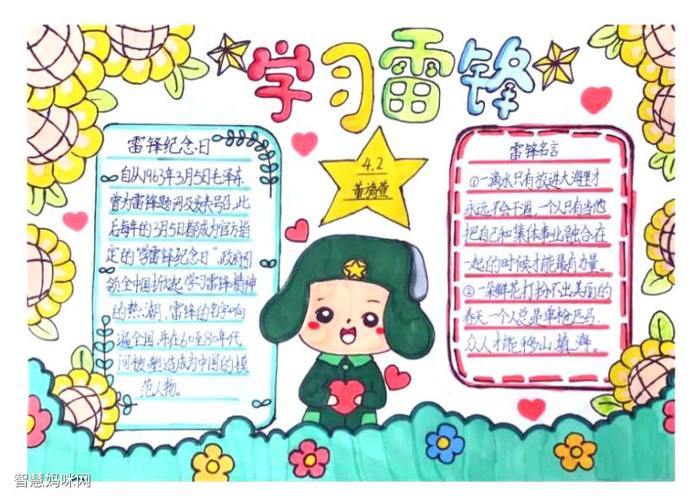 学习雷锋
4.2
雷锋纪念日
自从1963年3月5日毛泽东
曾为雷锋题词及发表号召,此
后每年的3月5日都成为官方指
定的“学雷锋纪念日”政府引
领全中国掀起学习雷锋精神
的热潮,雷锋的名字响
遍全国,并在60至80年代
间被塑造成为中国的模
范人物。
雷锋名言
①一滴水只有放进大海里才
永远不会干涸,一个人只有当他
把自己和集体事业融合在
一起的时候才能最有力量。
②一朵鲜花打扮不出美丽的
春天,一个人总是单枪匹马,
众人才能移山填海。
智慧妈咪网